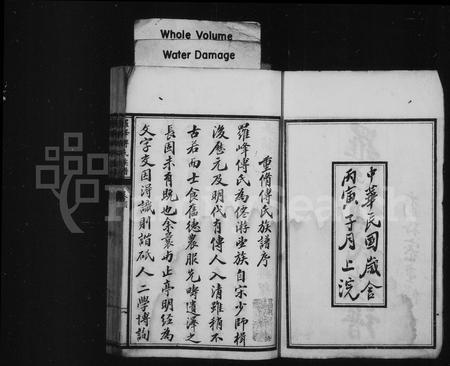 Whole Volume
Water Damage
中華民國歲舍
丙寅子月上浣
重脩傅氏族譜序
羅峰傅氏為僊游望族自宋少師楫
後歷元及明代有傳人入清雖稍不
古若而士食舊德農服先疇遺澤之
長固未有既也余曩與止亭明經為
文字交因得識則諧砥人二學博詢